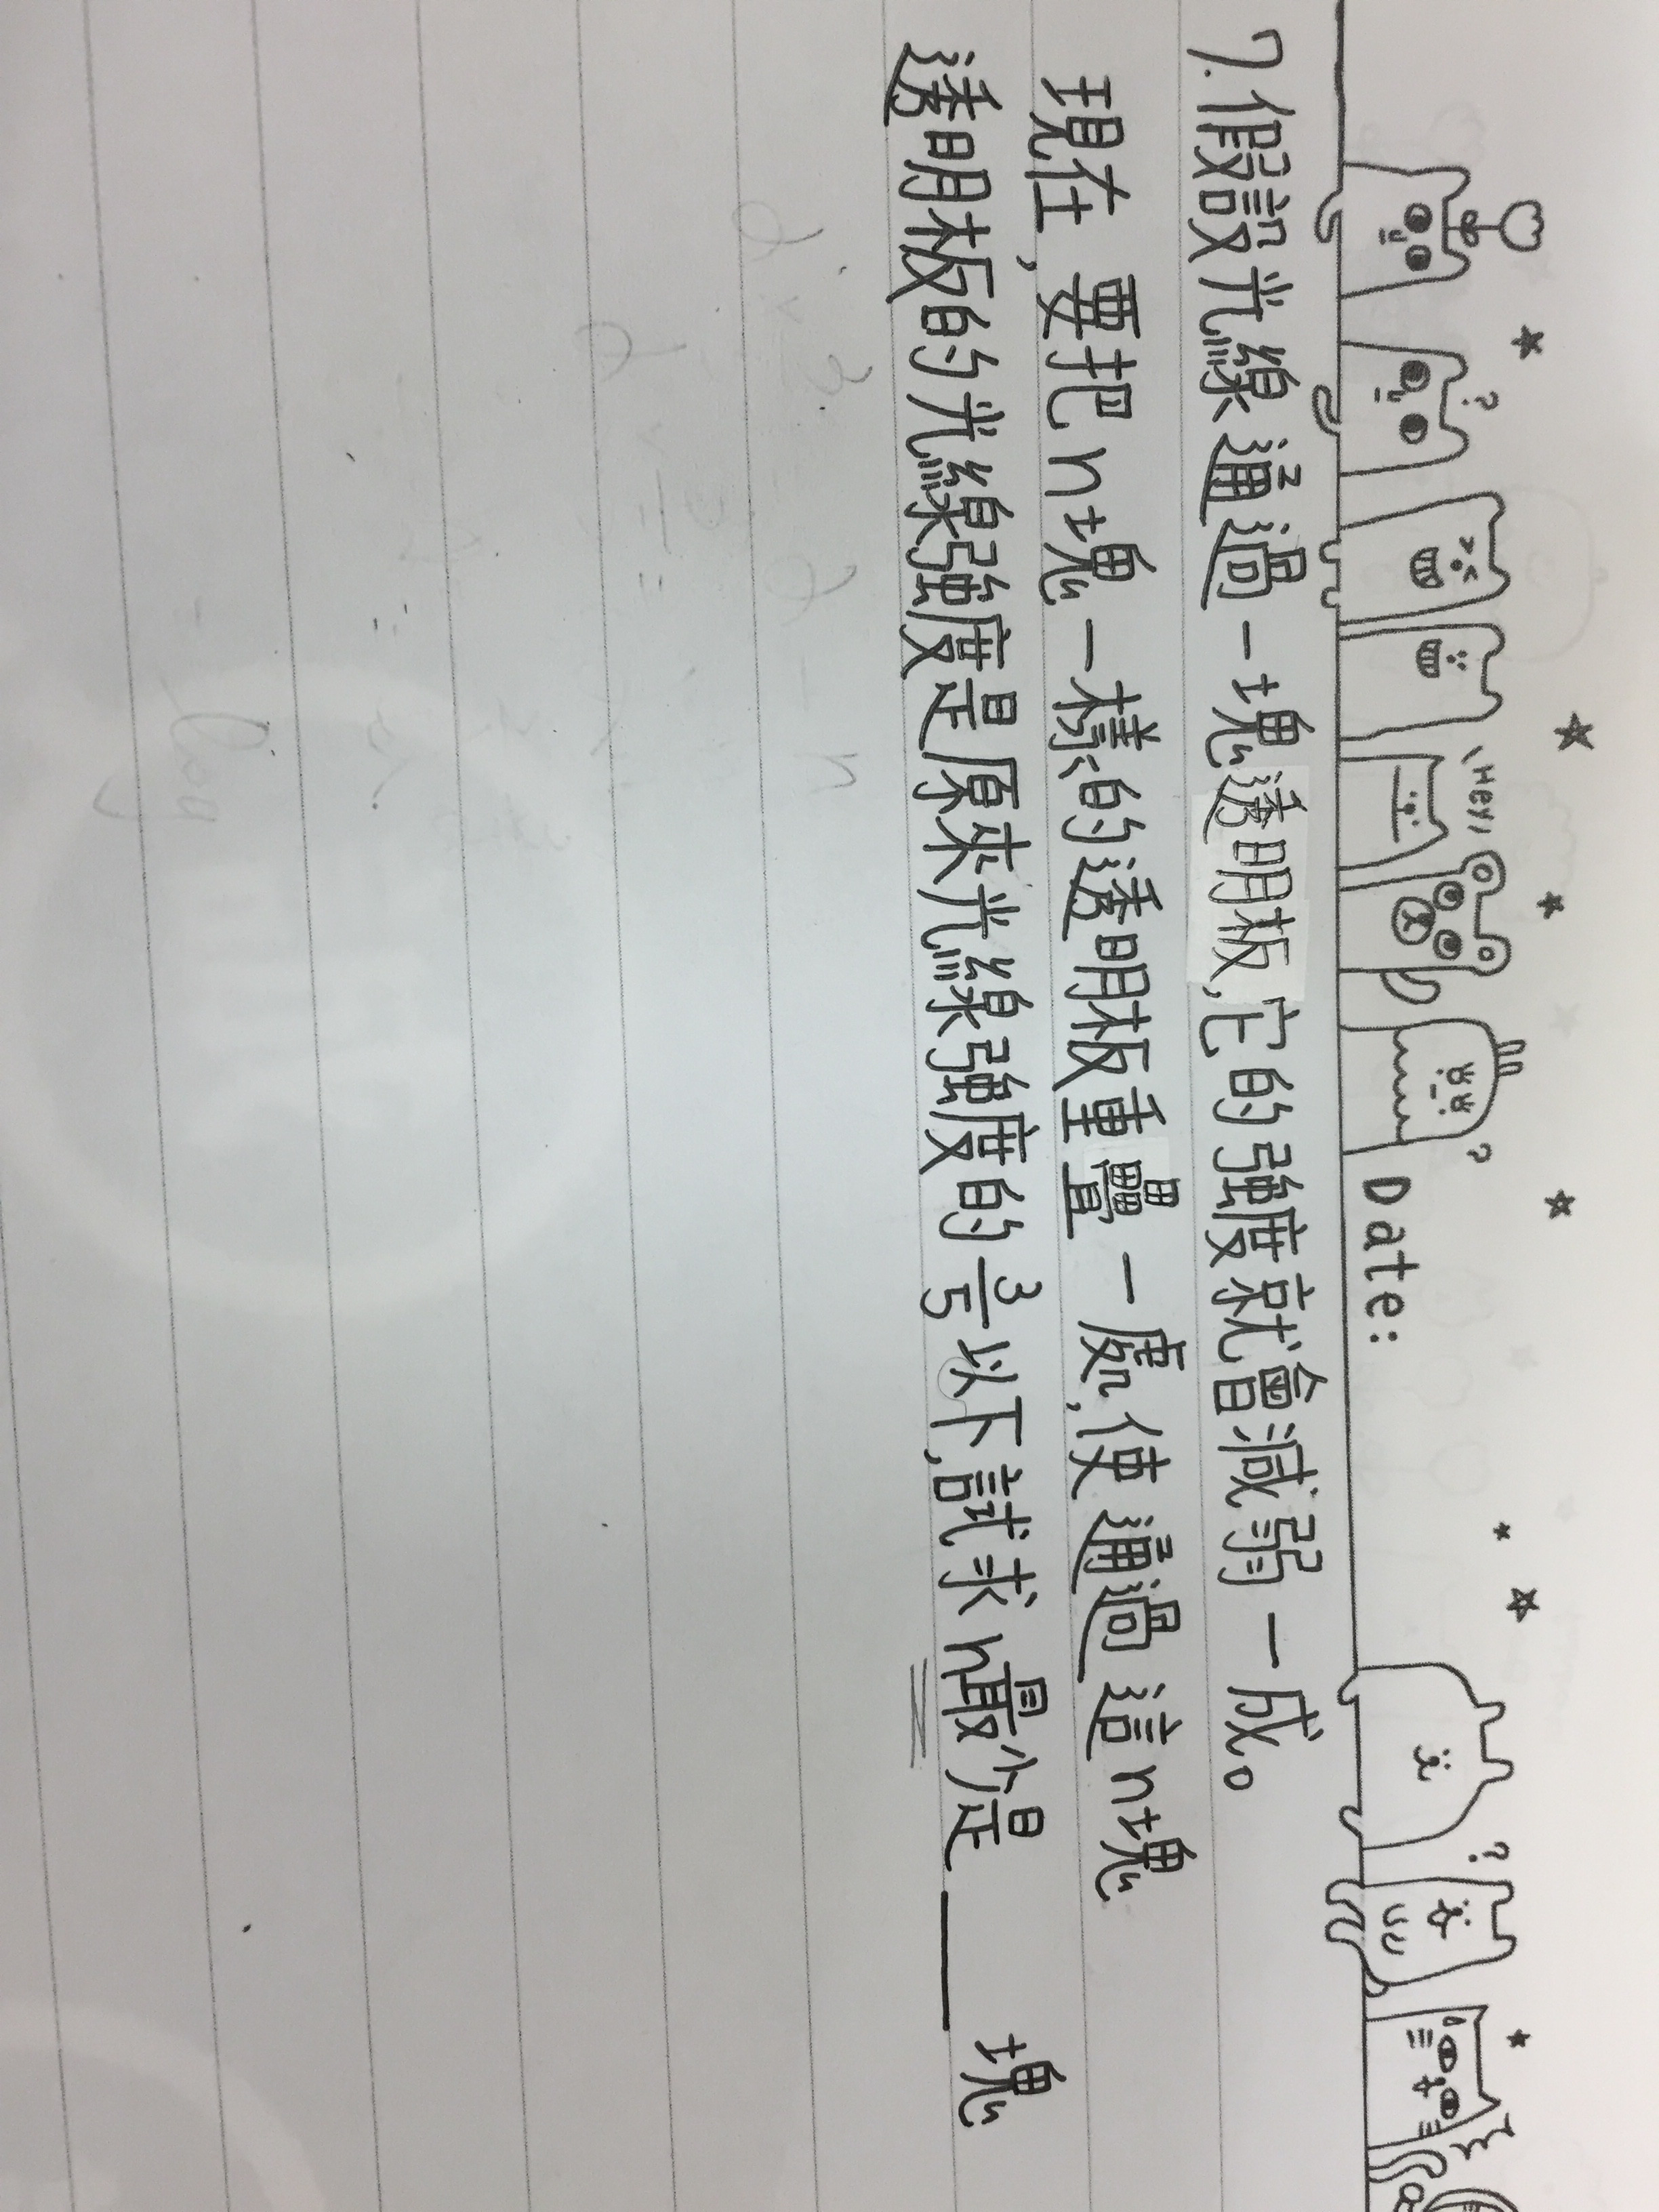 Hey!
Date:
7. 假設光線通過一塊透明板,它的強度就會減弱一成。
現在,要把n塊一樣的透明板重疊一處,使通過這n塊
透明板的光線強度是原來光線強度的3/5以下,試求n最少是____塊